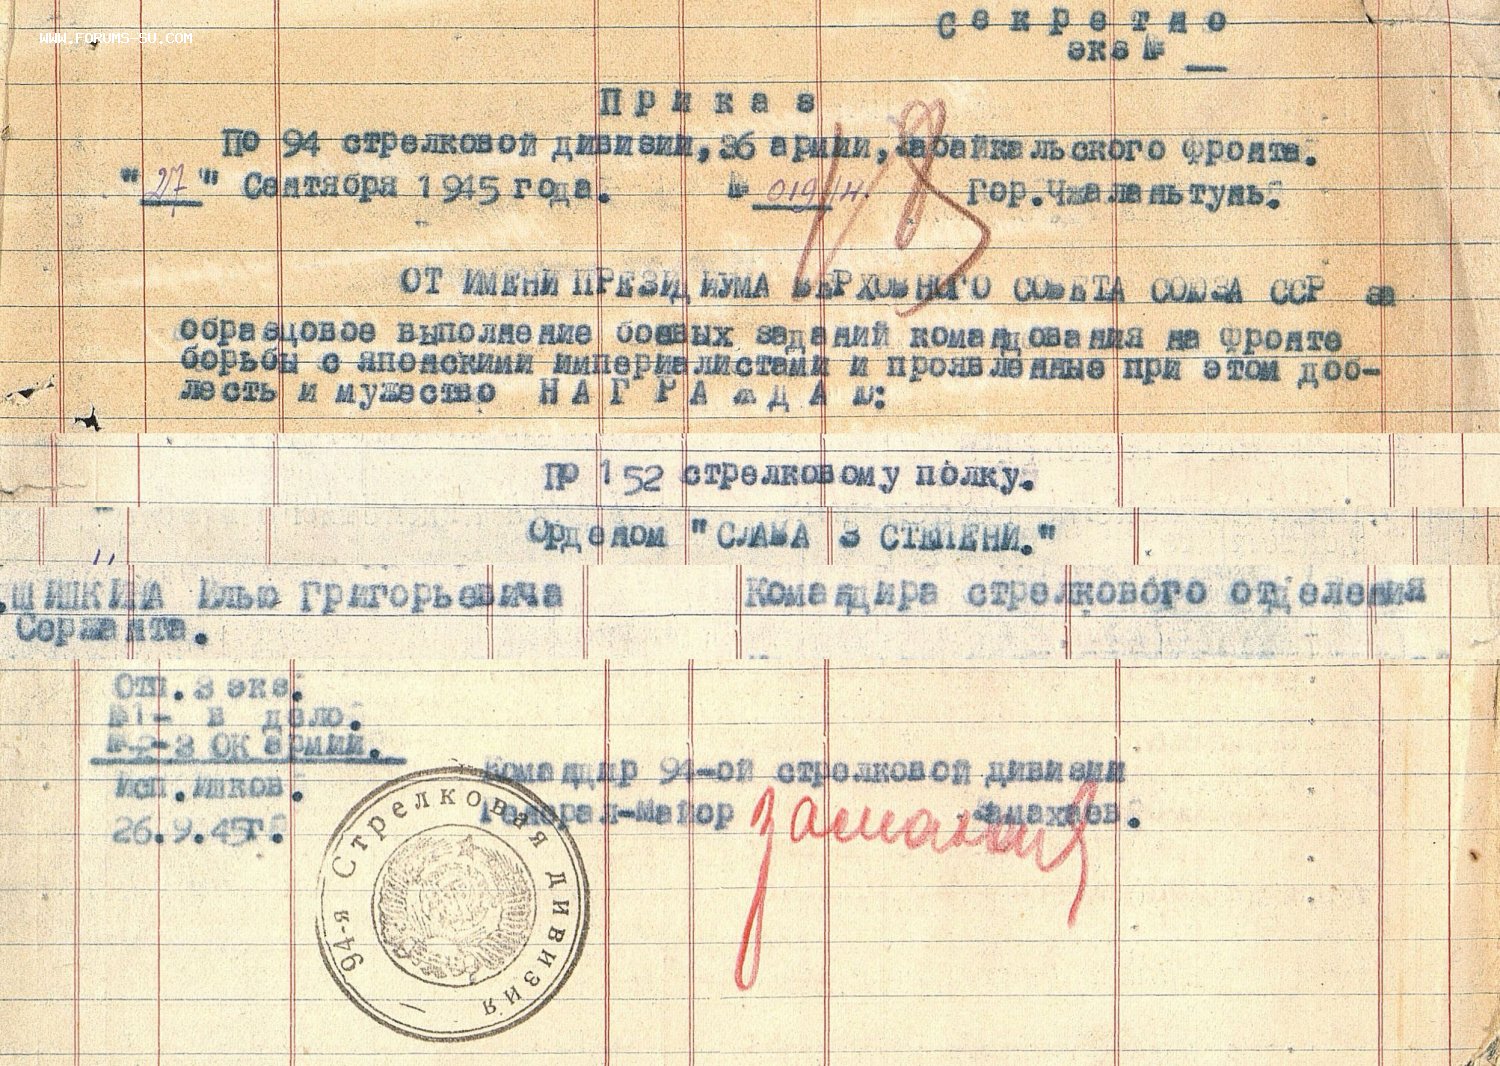 WWW.FORUMS-SU.COM
Секретно
экз №
Приказ
По 94 стрелковой дивизии, 36 армии, Забайкальского фронта.
"27" Сентября 1945 года. № 019/н Гор. Чжаланьтунь.
ОТ ИМЕНИ ПРЕЗИДИУМА ВЕРХОВНОГО СОВЕТА СОЮЗА ССР за
образцовое выполнение боевых заданий командования на фронте
борьбы с японскими империалистами и проявленные при этом доб-
лесть и мужество НАГРАЖДАЮ:
По 152 стрелковому полку.
Орденом "СЛАВА 3 СТЕПЕНИ."
ШИШКИНА Илью Григорьевича Командира стрелкового отделения
Сержанта.
Отп. 3 экз.
№1- в дело.
№2-3 ОК армии.
Исп.
26.9.45г.
Командир 94-ой стрелковой дивизии
Генерал-Майор Замахаев.
94-я Стрелковая дивизия